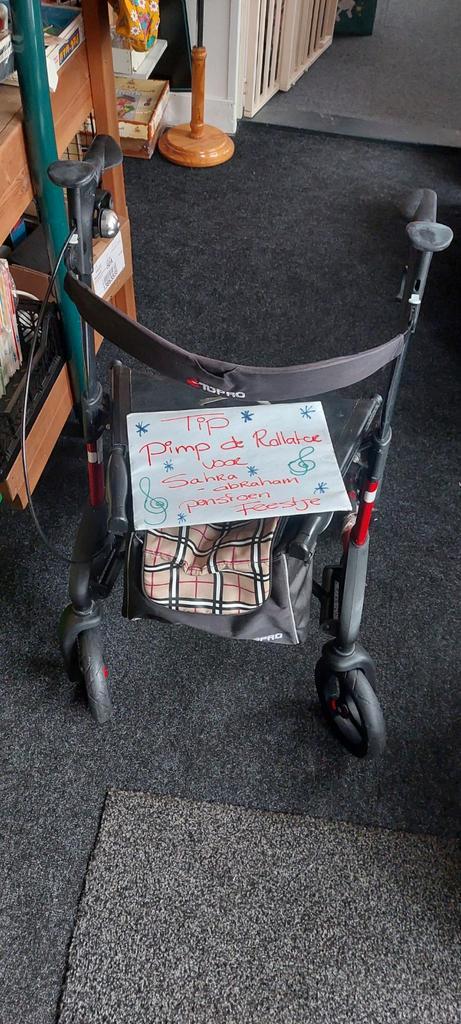 TOPRO
Tip
Pimp de Rollator
voor
Sahra
abraham
pensioen
Feestje
TOPRO